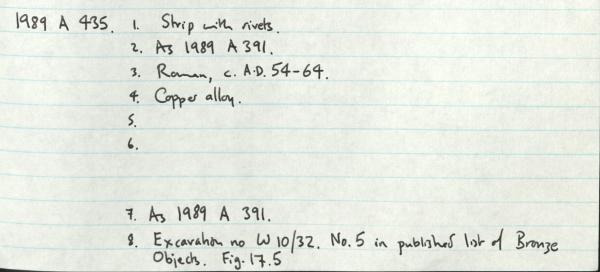 1989 A 435. 1. Strip with rivets.
2. As 1989 A 391.
3. Roman, c. A.D. 54-64.
4. Copper alloy.
5.
6.
7. As 1989 A 391.
8. Excavation no W 10/32. No. 5 in published list of Bronze
Objects. Fig. 17.5